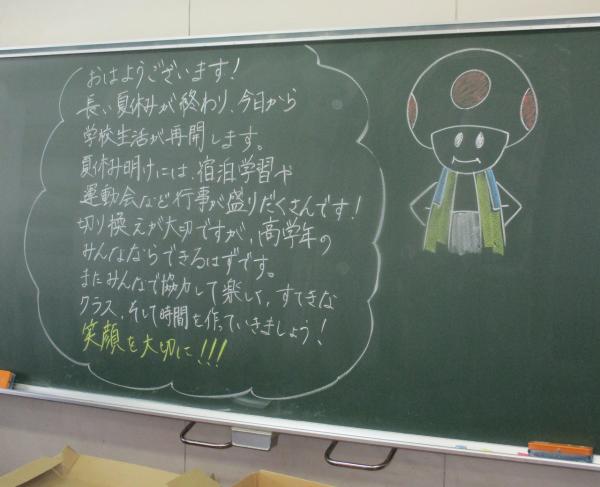 おはようございます!
長い夏休みが終わり、今日から
学校生活が再開します。
夏休み明けには、宿泊学習や
運動会など行事が盛りだくさんです!
切り換えが大切ですが、高学年の
みんなならできるはずです。
またみんなで協力して楽しく、すてきな
クラス、そして時間を作っていきましょう!
笑顔を大切に!!!